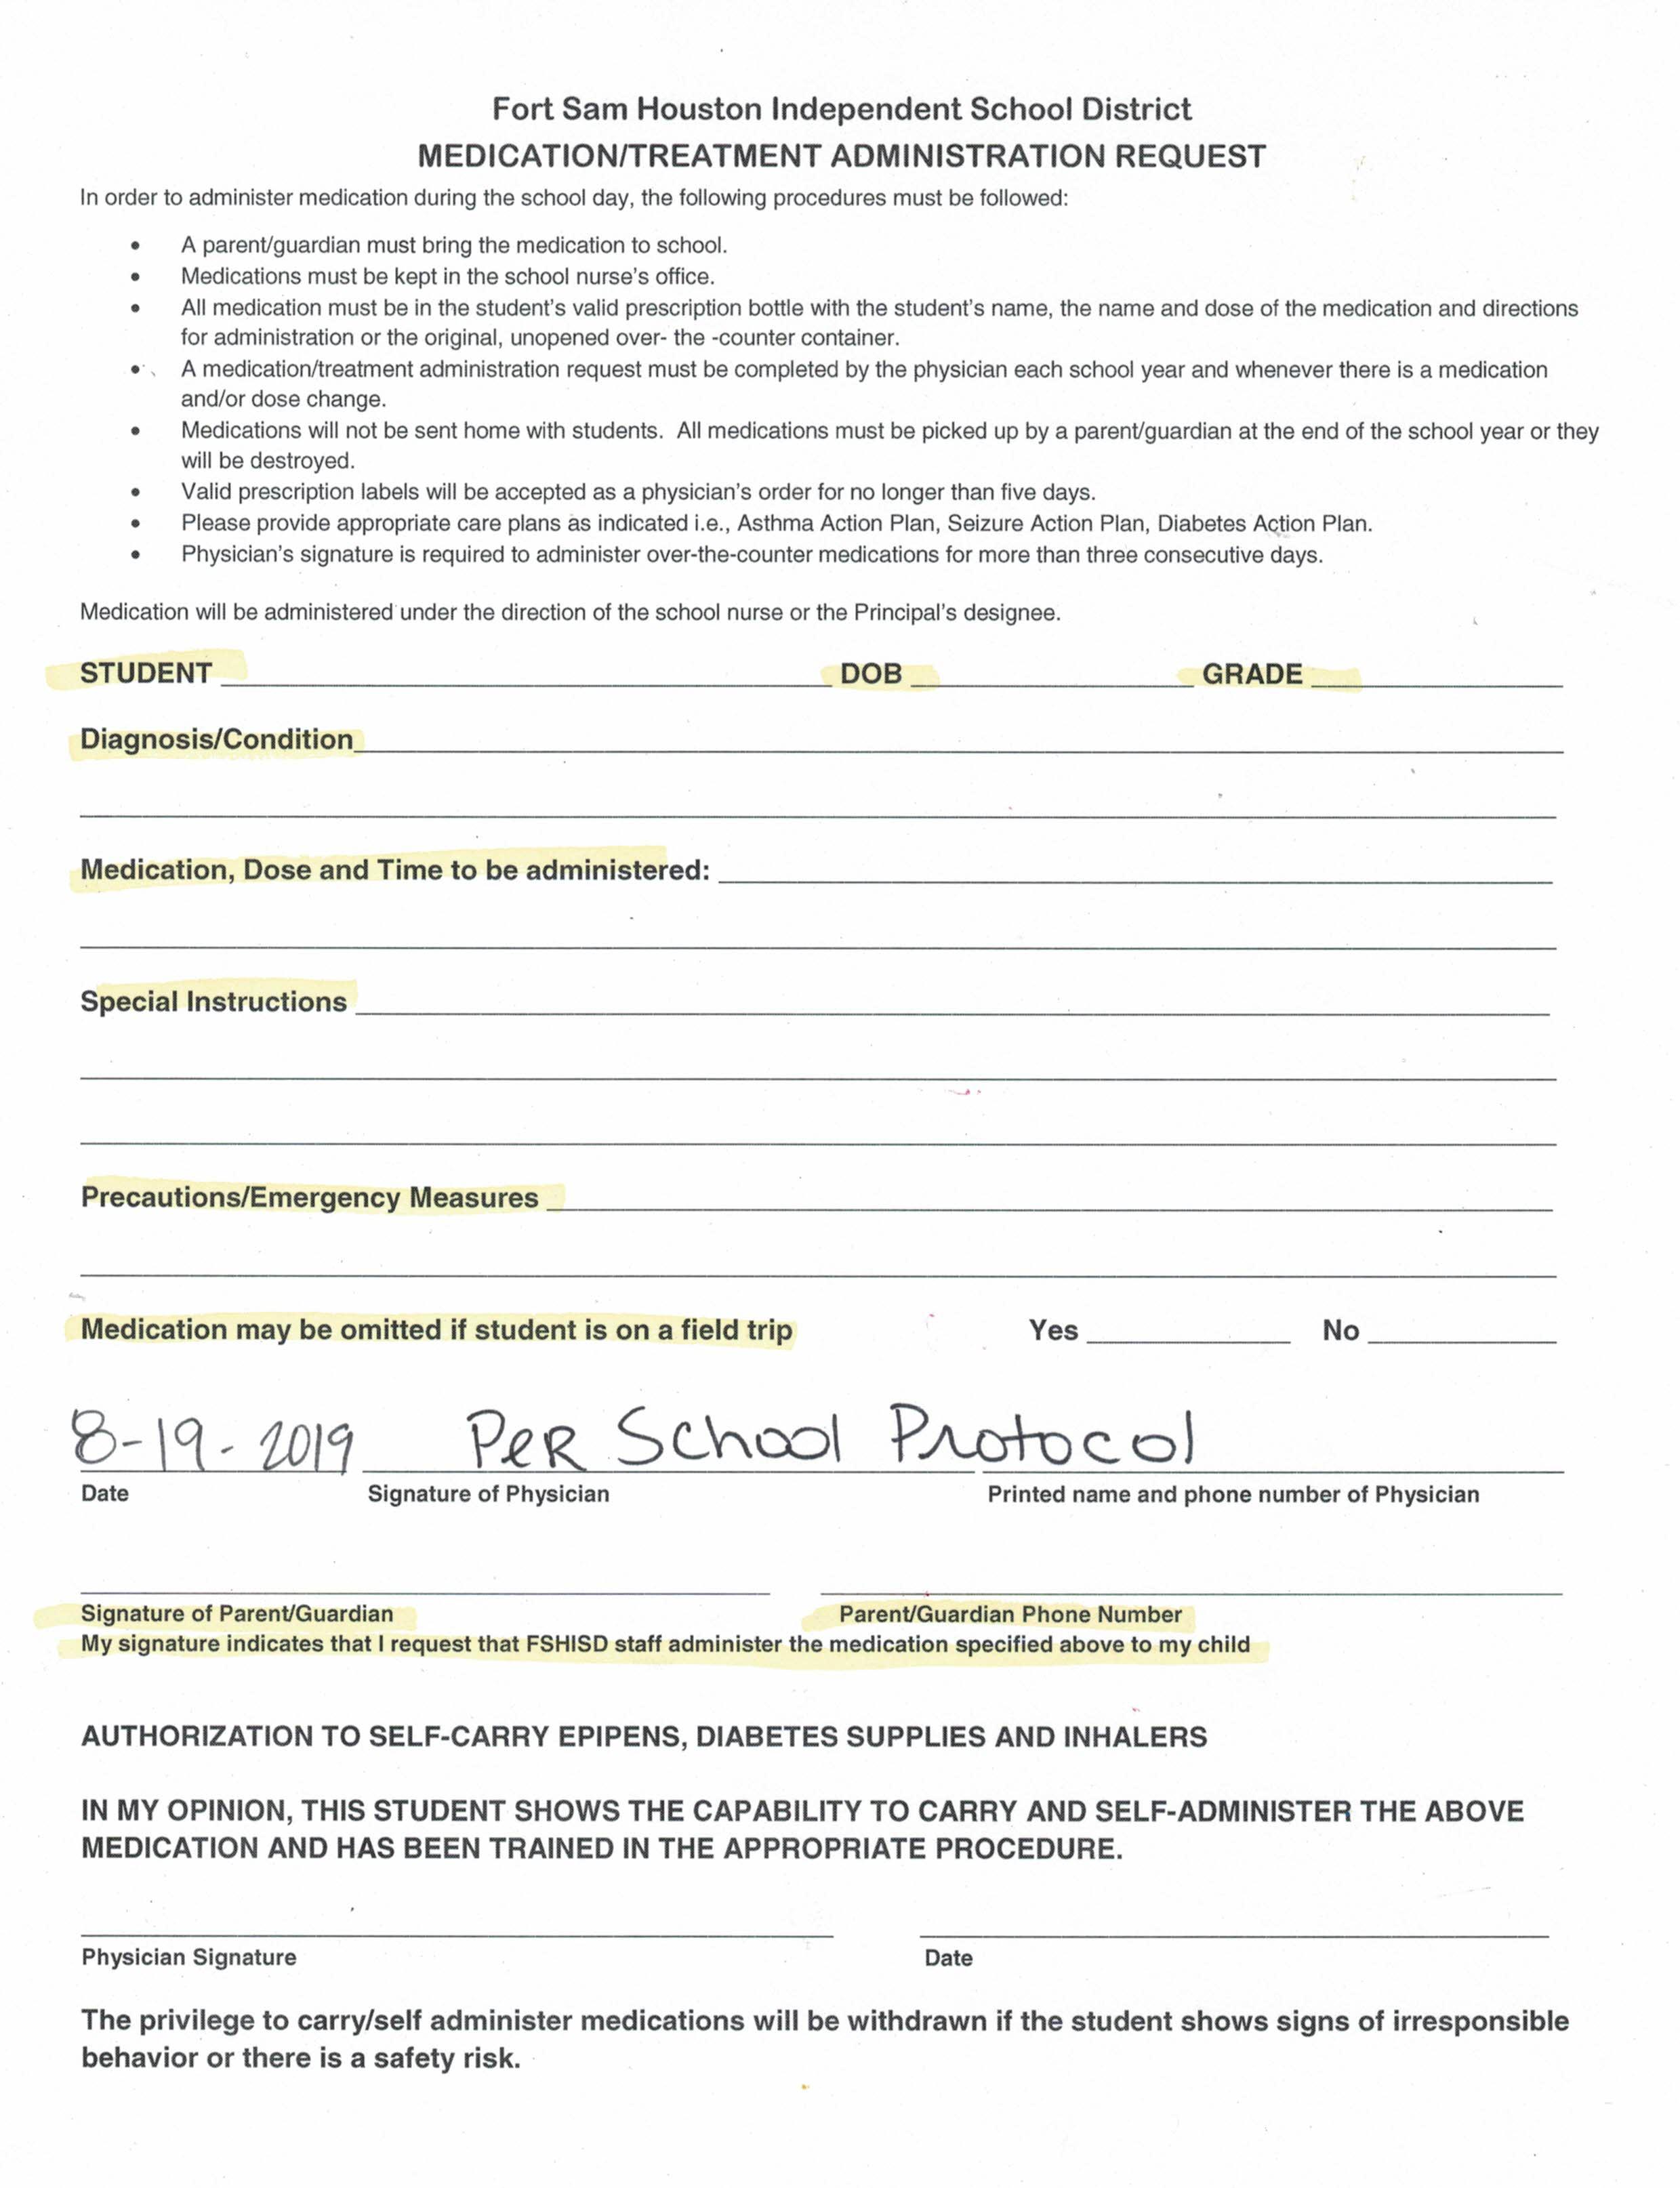 Fort Sam Houston Independent School District
MEDICATION/TREATMENT ADMINISTRATION REQUEST
In order to administer medication during the school day, the following procedures must be followed:
• A parent/guardian must bring the medication to school.
• Medications must be kept in the school nurse's office.
• All medication must be in the student's valid prescription bottle with the student's name, the name and dose of the medication and directions
for administration or the original, unopened over- the -counter container.
• A medication/treatment administration request must be completed by the physician each school year and whenever there is a medication
and/or dose change.
• Medications will not be sent home with students. All medications must be picked up by a parent/guardian at the end of the school year or they
will be destroyed.
• Valid prescription labels will be accepted as a physician's order for no longer than five days.
• Please provide appropriate care plans as indicated i.e., Asthma Action Plan, Seizure Action Plan, Diabetes Action Plan.
• Physician's signature is required to administer over-the-counter medications for more than three consecutive days.
Medication will be administered under the direction of the school nurse or the Principal's designee.
STUDENT DOB GRADE
Diagnosis/Condition
Medication, Dose and Time to be administered:
Special Instructions
Precautions/Emergency Measures
Medication may be omitted if student is on a field trip Yes No
8-19-2019 PeR School Protocol
Date Signature of Physician Printed name and phone number of Physician
Signature of Parent/Guardian Parent/Guardian Phone Number
My signature indicates that I request that FSHISD staff administer the medication specified above to my child
AUTHORIZATION TO SELF-CARRY EPIPENS, DIABETES SUPPLIES AND INHALERS
IN MY OPINION, THIS STUDENT SHOWS THE CAPABILITY TO CARRY AND SELF-ADMINISTER THE ABOVE
MEDICATION AND HAS BEEN TRAINED IN THE APPROPRIATE PROCEDURE.
Physician Signature Date
The privilege to carry/self administer medications will be withdrawn if the student shows signs of irresponsible
behavior or there is a safety risk.